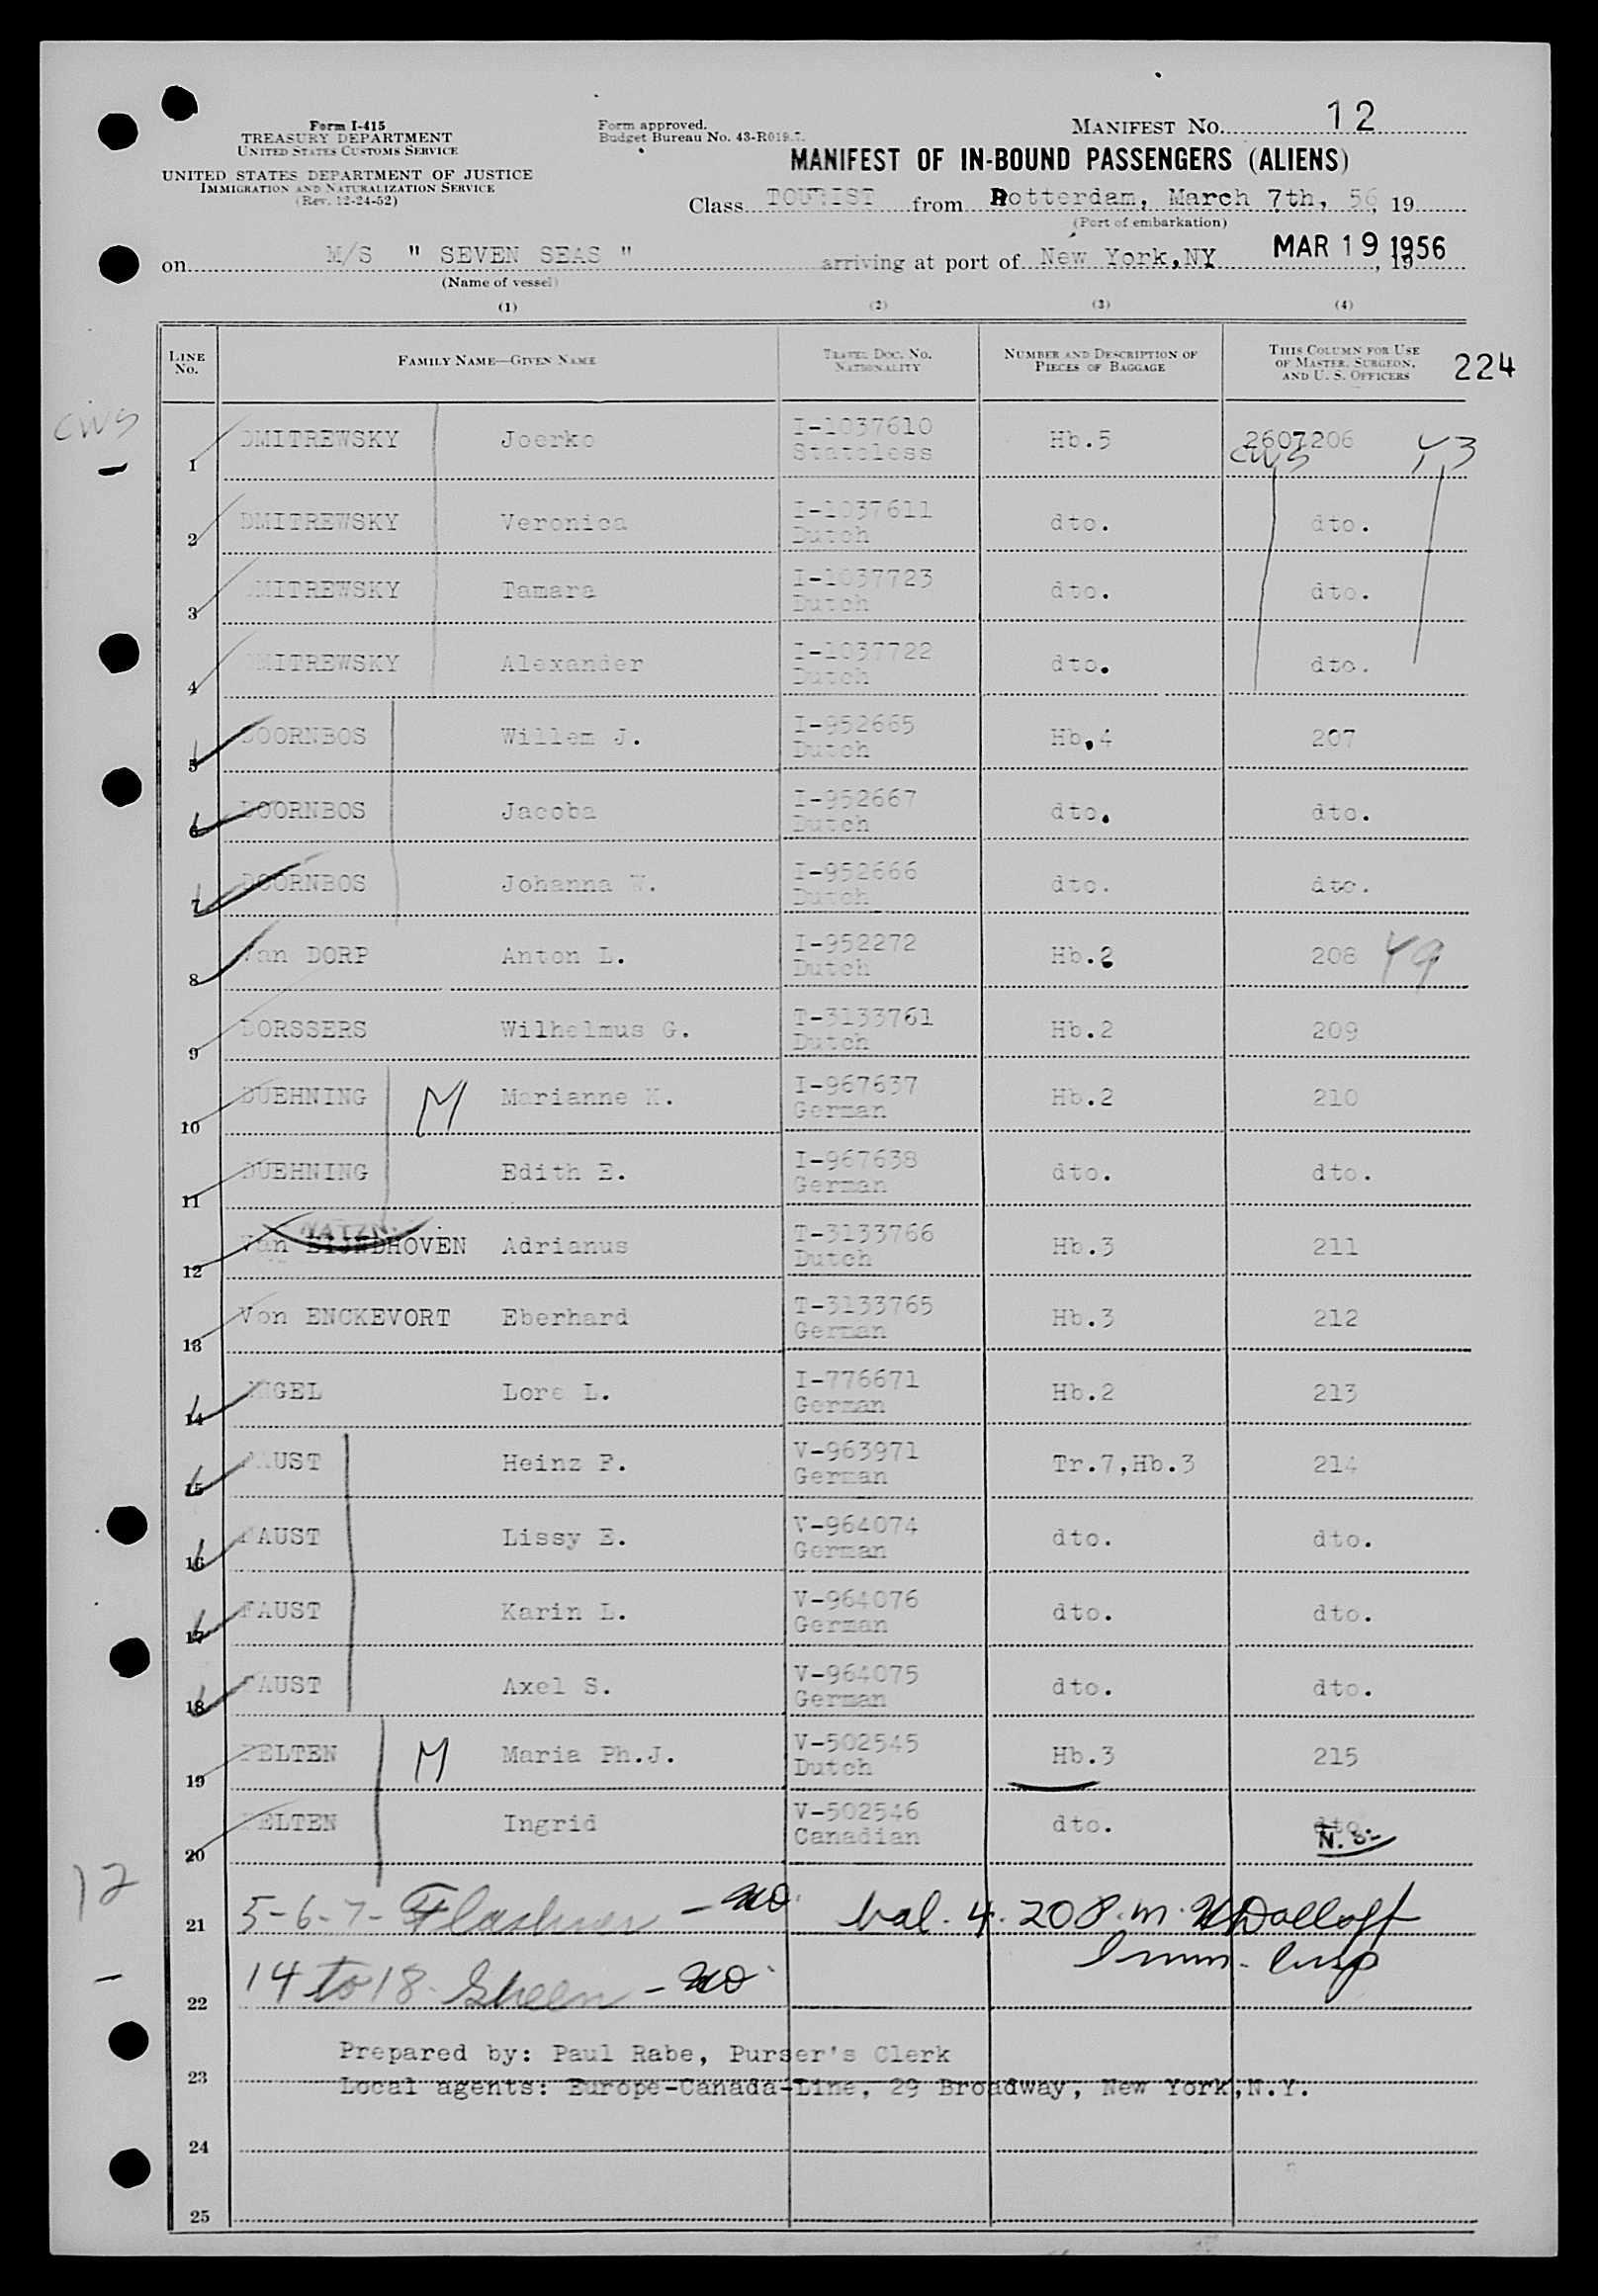 Form I-415
TREASURY DEPARTMENT
UNITED STATES CUSTOMS SERVICE
UNITED STATES DEPARTMENT OF JUSTICE
IMMIGRATION AND NATURALIZATION SERVICE
(Rev. 12-24-52)
Form approved.
Budget Bureau No. 43-R019.7.
MANIFEST No. 12
MANIFEST OF IN-BOUND PASSENGERS (ALIENS)
Class TOURIST from Rotterdam, March 7th, 56, 19
(Port of embarkation)
on M/S " SEVEN SEAS " arriving at port of New York,NY MAR 19 1956, 19
(Name of vessel)
(1) (2) (3) (4)
LINE No. FAMILY NAME—GIVEN NAME TRAVEL DOC. No. NATIONALITY NUMBER AND DESCRIPTION OF PIECES OF BAGGAGE THIS COLUMN FOR USE OF MASTER, SURGEON, AND U. S. OFFICERS 224
cws
1 DMITREWSKY Joerko I-1037610 Stateless Hb.5 2607206 cws 43
2 DMITREWSKY Veronica I-1037611 Dutch dto. dto.
3 DMITREWSKY Tamara I-1037723 Dutch dto. dto.
4 DMITREWSKY Alexander I-1037722 Dutch dto. dto.
5 DOORNBOS Willem J. I-952665 Dutch Hb.4 207
6 DOORNBOS Jacoba I-952667 Dutch dto. dto.
7 DOORNBOS Johanna W. I-952666 Dutch dto. dto.
8 Van DORP Anton L. I-952272 Dutch Hb.2 208 49
9 DORSSERS Wilhelmus G. T-3133761 Dutch Hb.2 209
10 DUEHNING M Marianne K. I-967637 German Hb.2 210
11 DUEHNING Edith E. I-967638 German dto. dto.
12 Van EIJNDHOVEN Adrianus T-3133766 Dutch Hb.3 211
13 Von ENCKEVORT Eberhard T-3133765 German Hb.3 212
14 ENGEL Lore L. I-776671 German Hb.2 213
15 FAUST Heinz F. V-963971 German Tr.7,Hb.3 214
16 FAUST Lissy E. V-964074 German dto. dto.
17 FAUST Karin L. V-964076 German dto. dto.
18 FAUST Axel S. V-964075 German dto. dto.
19 FELTEN M Maria Ph.J. V-502545 Dutch Hb.3 215
20 FELTEN Ingrid V-502546 Canadian dto. dto.
12
21 5-6-7- bal. 4.20 P.m.
Imm. Insp
22 14 to 18
Prepared by: Paul Rabe, Purser's Clerk
23
Local agents: Europe-Canada-Line, 29 Broadway, New York,N.Y.
24
25